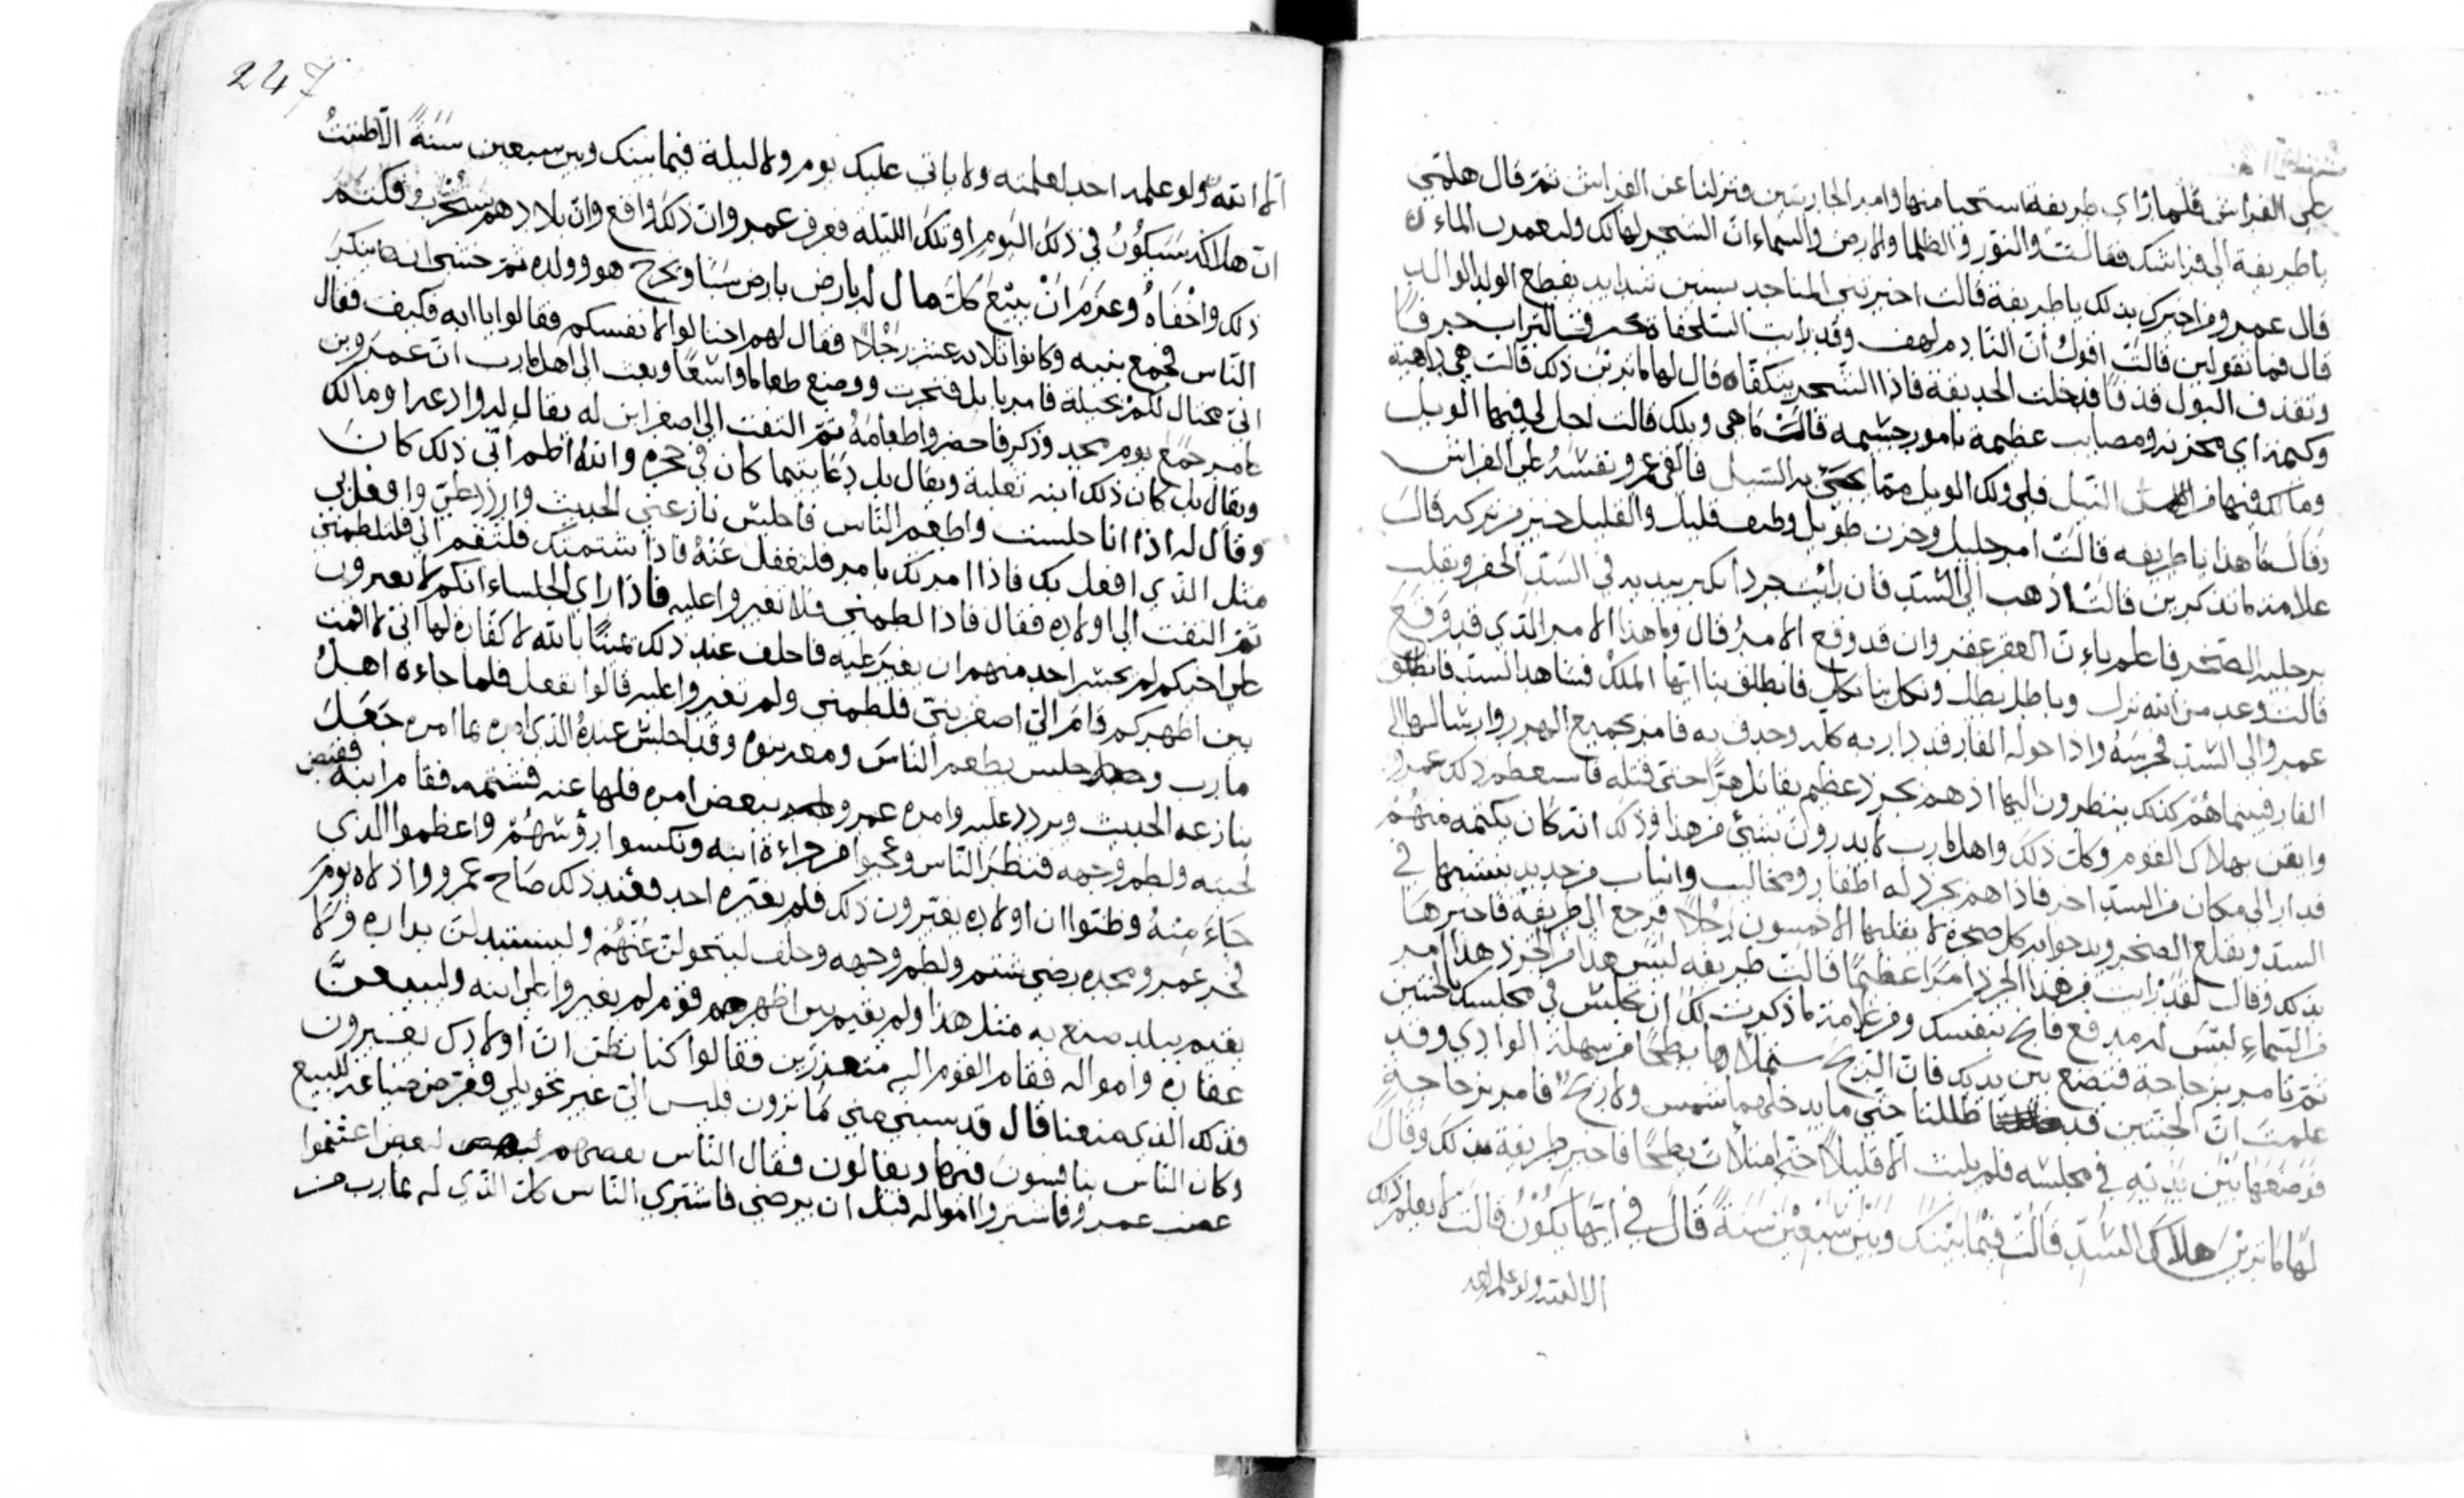 على الفراش فلما رأى طريفة استحيا منها وامر الجاريتين فنزلنا عن الفراش ثمّ قال هلمّي
ياطريفة الى فراشك فقالت والنور والظلما والارض والسماء انّ الشجر لهالك وليعودن الماء
قال عمرو من اخبرك بذلك ياطريفة قالت اخبرتني المناجد بسنين شدايد يقطع الولد الوالد
قال فما تقولين قالت اقول انّ النادم لهف وقد رايت السلحفاة تجرف التراب جرفًا
وتقذف البول قذفًا فدخلت الحديقة فاذا الشجر يتكفّاه قال لها ما ترين ذلك قالت هي داهية
وكيمة اي محزنه ومصايب عظيمة بامور جسيمه قالت ما هي ويلك قالت اجل لي فيها الويل
وما لك فيها من النيل فلي ولك الويل ممّا يجئ به السيل فالقى عمرو نفسه على الفراش
وقال ما هذا ياطريفه قالت امر جليل وحزن طويل وخلف قليل والقليل خير من تركه قال
علامة ما تذكرين قالت اذهب الى السدّ فان رائيت جردا يكثر بيديه في السدّ الحفر ويقلب
برجليه الصخر فاعلم بان العقر عقر وان قد وقع الامر قال وما هذا الامر الذي قد وقع
قالت وعد من الله نزل وباطل بطل ونكال بنا نكل فانطلق بنا ايّها الملك فشاهد السدّ فانطلق
عمرو الى السدّ فحرسه واذا حوله الفار قد دار به كله وحدق به فامر بجميع الهرر وارسالها الى
الفار فبينما هم كذلك ينظرون اليها اذ هم بجرد عظيم يقاتل هرًّا حتى قتله فاستعظم ذلك عمرو
وايقن بهلاك القوم وكلّ ذلك واهل مارب لا يدرون بشئ من هذا وذلك انه كان يكتمه منهم
فدار الى مكان من السدّ اخر فاذا هم بجرد له اظفار ومخاليب وانياب من حديد ينشبها في
السدّ ويقلع الصخر ويدحوا به كل صخرة لا يقلبها الا خمسون رجلًا فرجع الى طريفة فاخبرها
بذلك وقال لقد رايت من هذا الجرد امرًا عظيمًا قالت طريفه ليس هذا من الجرد هذا امر
من السّماء ليس له مدفع فانج بنفسك ومن علامة ما ذكرت لك ان تجلس في مجلسك بالجنتين
ثمّ تامر بزجاجة فتضع بين يديك فان الريح ستملاها بطحا من سهلة الوادي وقد
علمت انّ الجنتين قد ظللنا حتى ما يدخلهما شمس ولا ريح فامر بزجاجة
فوضعها بين يديه في مجلسه فلم يلبث الا قليلًا حتى امتلأت بطحًا فاخبر طريفة بذلك وقال
لها ما ترين هلاك السدّ قالت فيما بينك وبين سبعين سنة قال في ايّها يكون قالت لا يعلم ذلك
الا الله ولو علمه احد
247
الّا الله ولو علمه احد لعلمته ولا ياتي عليك يوم ولا ليلة فيما بينك وبين سبعين سنة الّا ظننتُ
انّ هلاكه سيكون في ذلك اليوم او تلك الليلة فعرف عمرو انّ ذلك واقع وانّ بلادهم ستخرب فكتم
ذلك واخفاه وعزم ان يبيع كلّ مال له بارض بارض سبًا ويخرج هو وولده ثمّ خشي ان تنكر
النّاس فجمع بنيه وكانوا ثلاثه عشر رجلًا فقال لهم احتالوا لانفسكم فقالوا ياابه فكيف فقال
انّي محتال لكم بحيلة فامر بابل فنحرت ووضع طعاما واسعًا وبعث الى اهل مارب انّ عمرو بن
عامر جمع يوم مجد وذكر فاحضروا طعامه ثمّ التفت الى اصغر ابن له يقال له وادعه او مالك
ويقال بل كان ذلك ابنه ثعلبة ويقال بل دعا يتيما كان في حجره وانّا اظم ائّي ذلك كان
وقال له اذا انا جلست واطعم النّاس فاجلس نازعني الحديث واردد عليّ وافعل بي
مثل الذي افعل بك فاذا امرتك بامر فلتغفل عنه فاذا شتمتك فلتقم الي فلتلطمني
ثمّ التفت الى اولاده فقال فاذا لطمني فلا تغيروا عليه فاذا راي الجلساء انكم لا تغيرون
على اخيكم لم يجسر احد منهم ان يغير عليه فاحلف عند ذلك يمينًا بالله لا كفّاره لها اني لا اقمت
بين اظهركم قام اليّ اصغر بنيّ فلطمني ولم تغيروا عليه قالوا نفعل فلما جاءه اهل
مارب جلس يطعم النّاس ومعه بنوه وقد اجلس عنده الذي امره بما امره جعل
ينازعه الحديث ويردد عليه وامره عمرو ببعض امره فلها عنه فشتمه فقام ابنه فقبض
لحيته ولطم وجهه فنظر النّاس وعجبوا من جراءة ابنه ونكسوا رؤسهم واعظموا الذي
جاء منه وظنّوا ان اولاده يغيّرون ذلك فلم يغيّره احد فعند ذلك صاح عمرو واذلاه يوم
فخر عمرو ومجده رضى شتم ولطم وجهه وحلف ليتحولن عنهم وليستبدلن بداره ولا
يقيم ببلد صنع به مثل هذا ولم يقيم بين اظهر قوم لم يغيروا على ابنه وليبيعنّ
عقاره وامواله فقام القوم اليه متعذرين فقالوا كنا نظن انّ اولادك يغيرون
فذلك الذي منعنا قال قد سبني مني ما ترون فليس اليّ غير تحويلي فعرض ضياعه للبيع
وكان النّاس يتنافسون فيها ويغالون فقال النّاس بعضهم لبعض اغتنموا
غضب عمرو فاشتروا امواله قبل ان يرضى فاشترى النّاس كلّ الذي له بمارب من